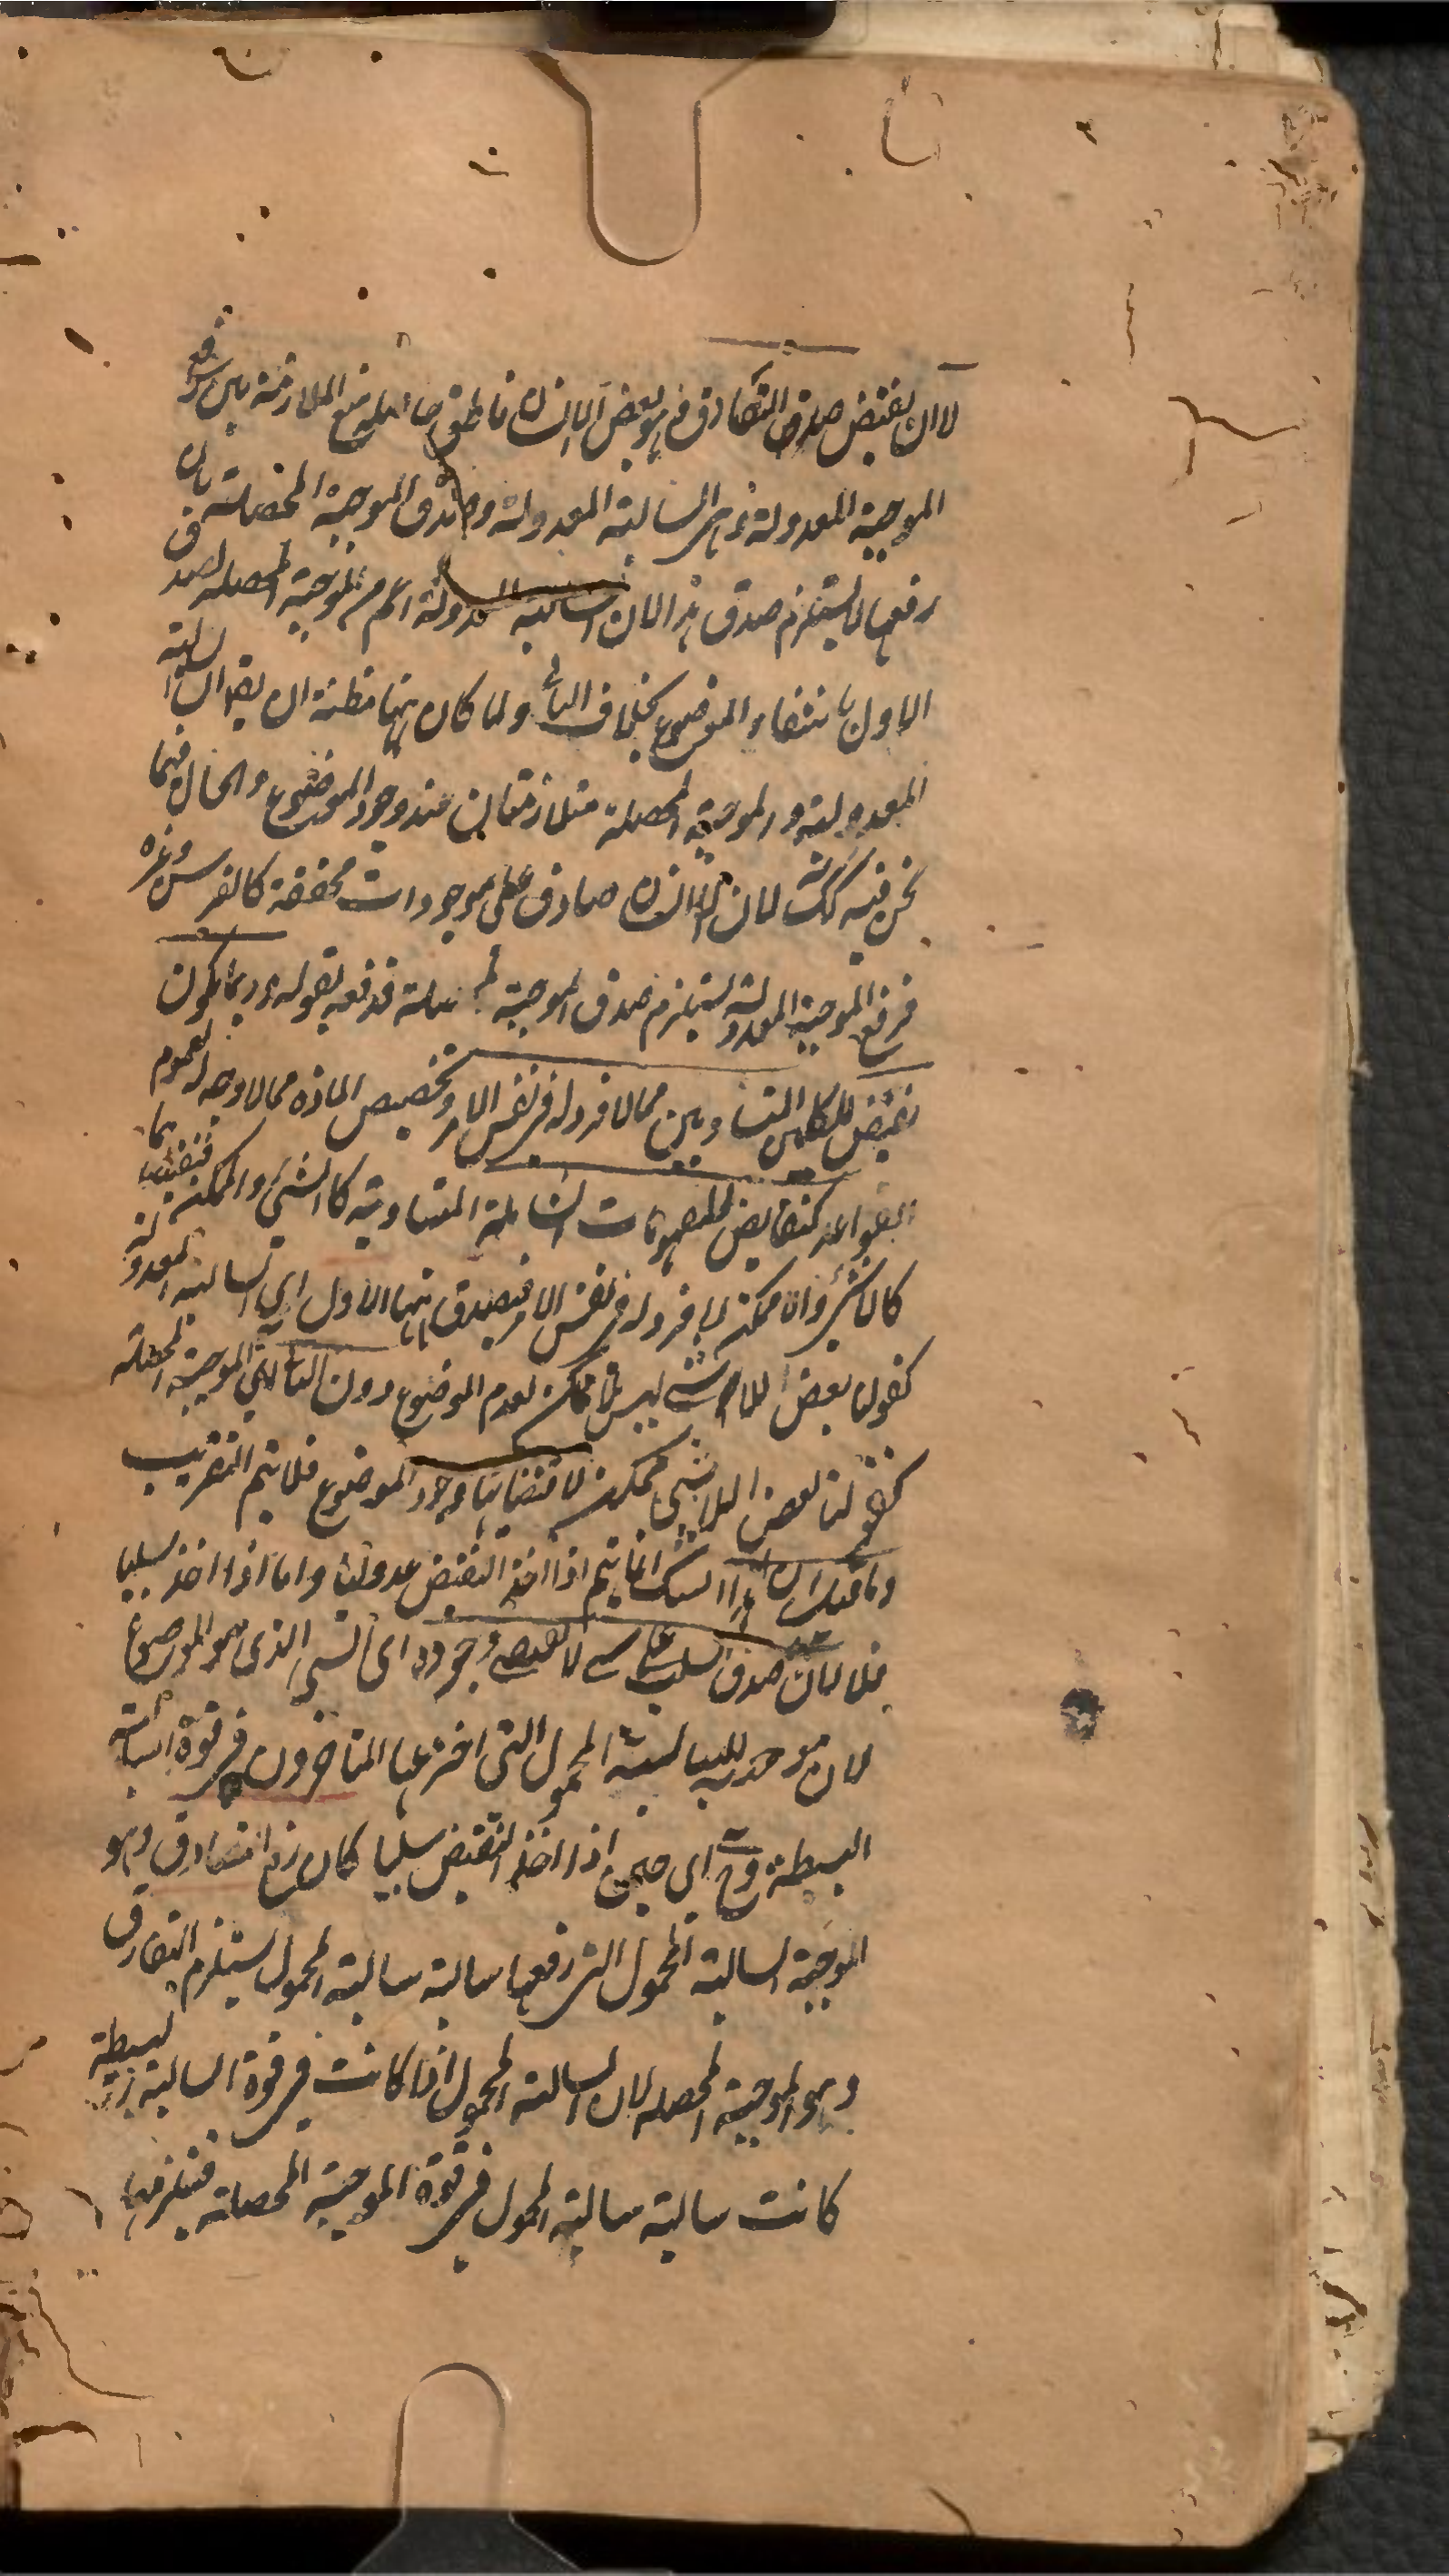 لا ان نقيض صدق التصادق في هو بعض اللاانسان ناطق حاصله منع الملازمة بين رفع
الموجبة المعدولة وهي السالبة المعدولة وصدق الموجبة المحصلة بان
رفعها لا يستلزم صدق هذا لان السالبة المعدولة اعم من الموجبة المحصلة لصدق
الاول بانتفاء الموضوع بخلاف الثاني ولما كان ههنا مظنة ان يقال السالبة
المعدولة والموجبة المحصلة متلازمتان عند وجود الموضوع والحال فيما
نحن فيه كذلك لان اللاانسان صادق على موجودات محققة كالفرس وغيره
فرفع الموجبة المعدولة يستلزم صدق الموجبة المحصلة فدفعه بقوله وربما يكون
نقيض للكليين المتساويين مما لا فرد له في نفس الامر وتخصيص المادة مما لا وجه له لعموم
القواعد كنقايض المفهومات الشاملة المتساوية كالشيء والممكن فنقيضاهما
كاللاشيء واللاممكن لا فرد له في نفس الامر فيصدق ههنا الاول اي السالبة المعدولة
كقولنا بعض اللاشيء ليس بلا ممكن لعدم الموضوع دون الثاني اي الموجبة المحصلة
كقولنا بعض اللاشيء ممكن لاقتضائها وجود الموضوع فلا يتم التقريب
وما قيل ان هذا الشك انما يتم اذا اخذ النقيض عدوليا واما اذا اخذ سلبيا
فلا لان صدق السلب على شيء لا يقتضي وجوده اي الشيء الذي هو الموضوع
لان موجبة السالبة المحمول التي اخترعها المتاخرون في قوة السالبة
البسيطة وح اي حين اذا اخذ النقيض سلبيا كان رفع التصادق وهو
الموجبة السالبة المحمول التي رفعها سالبة سالبة المحمول يستلزم التفارق
وهو الموجبة المحصلة لان السالبة المحمول اذا كانت في قوة السالبة البسيطة
كانت سالبة سالبة المحمول في قوة الموجبة المحصلة فيلزمها